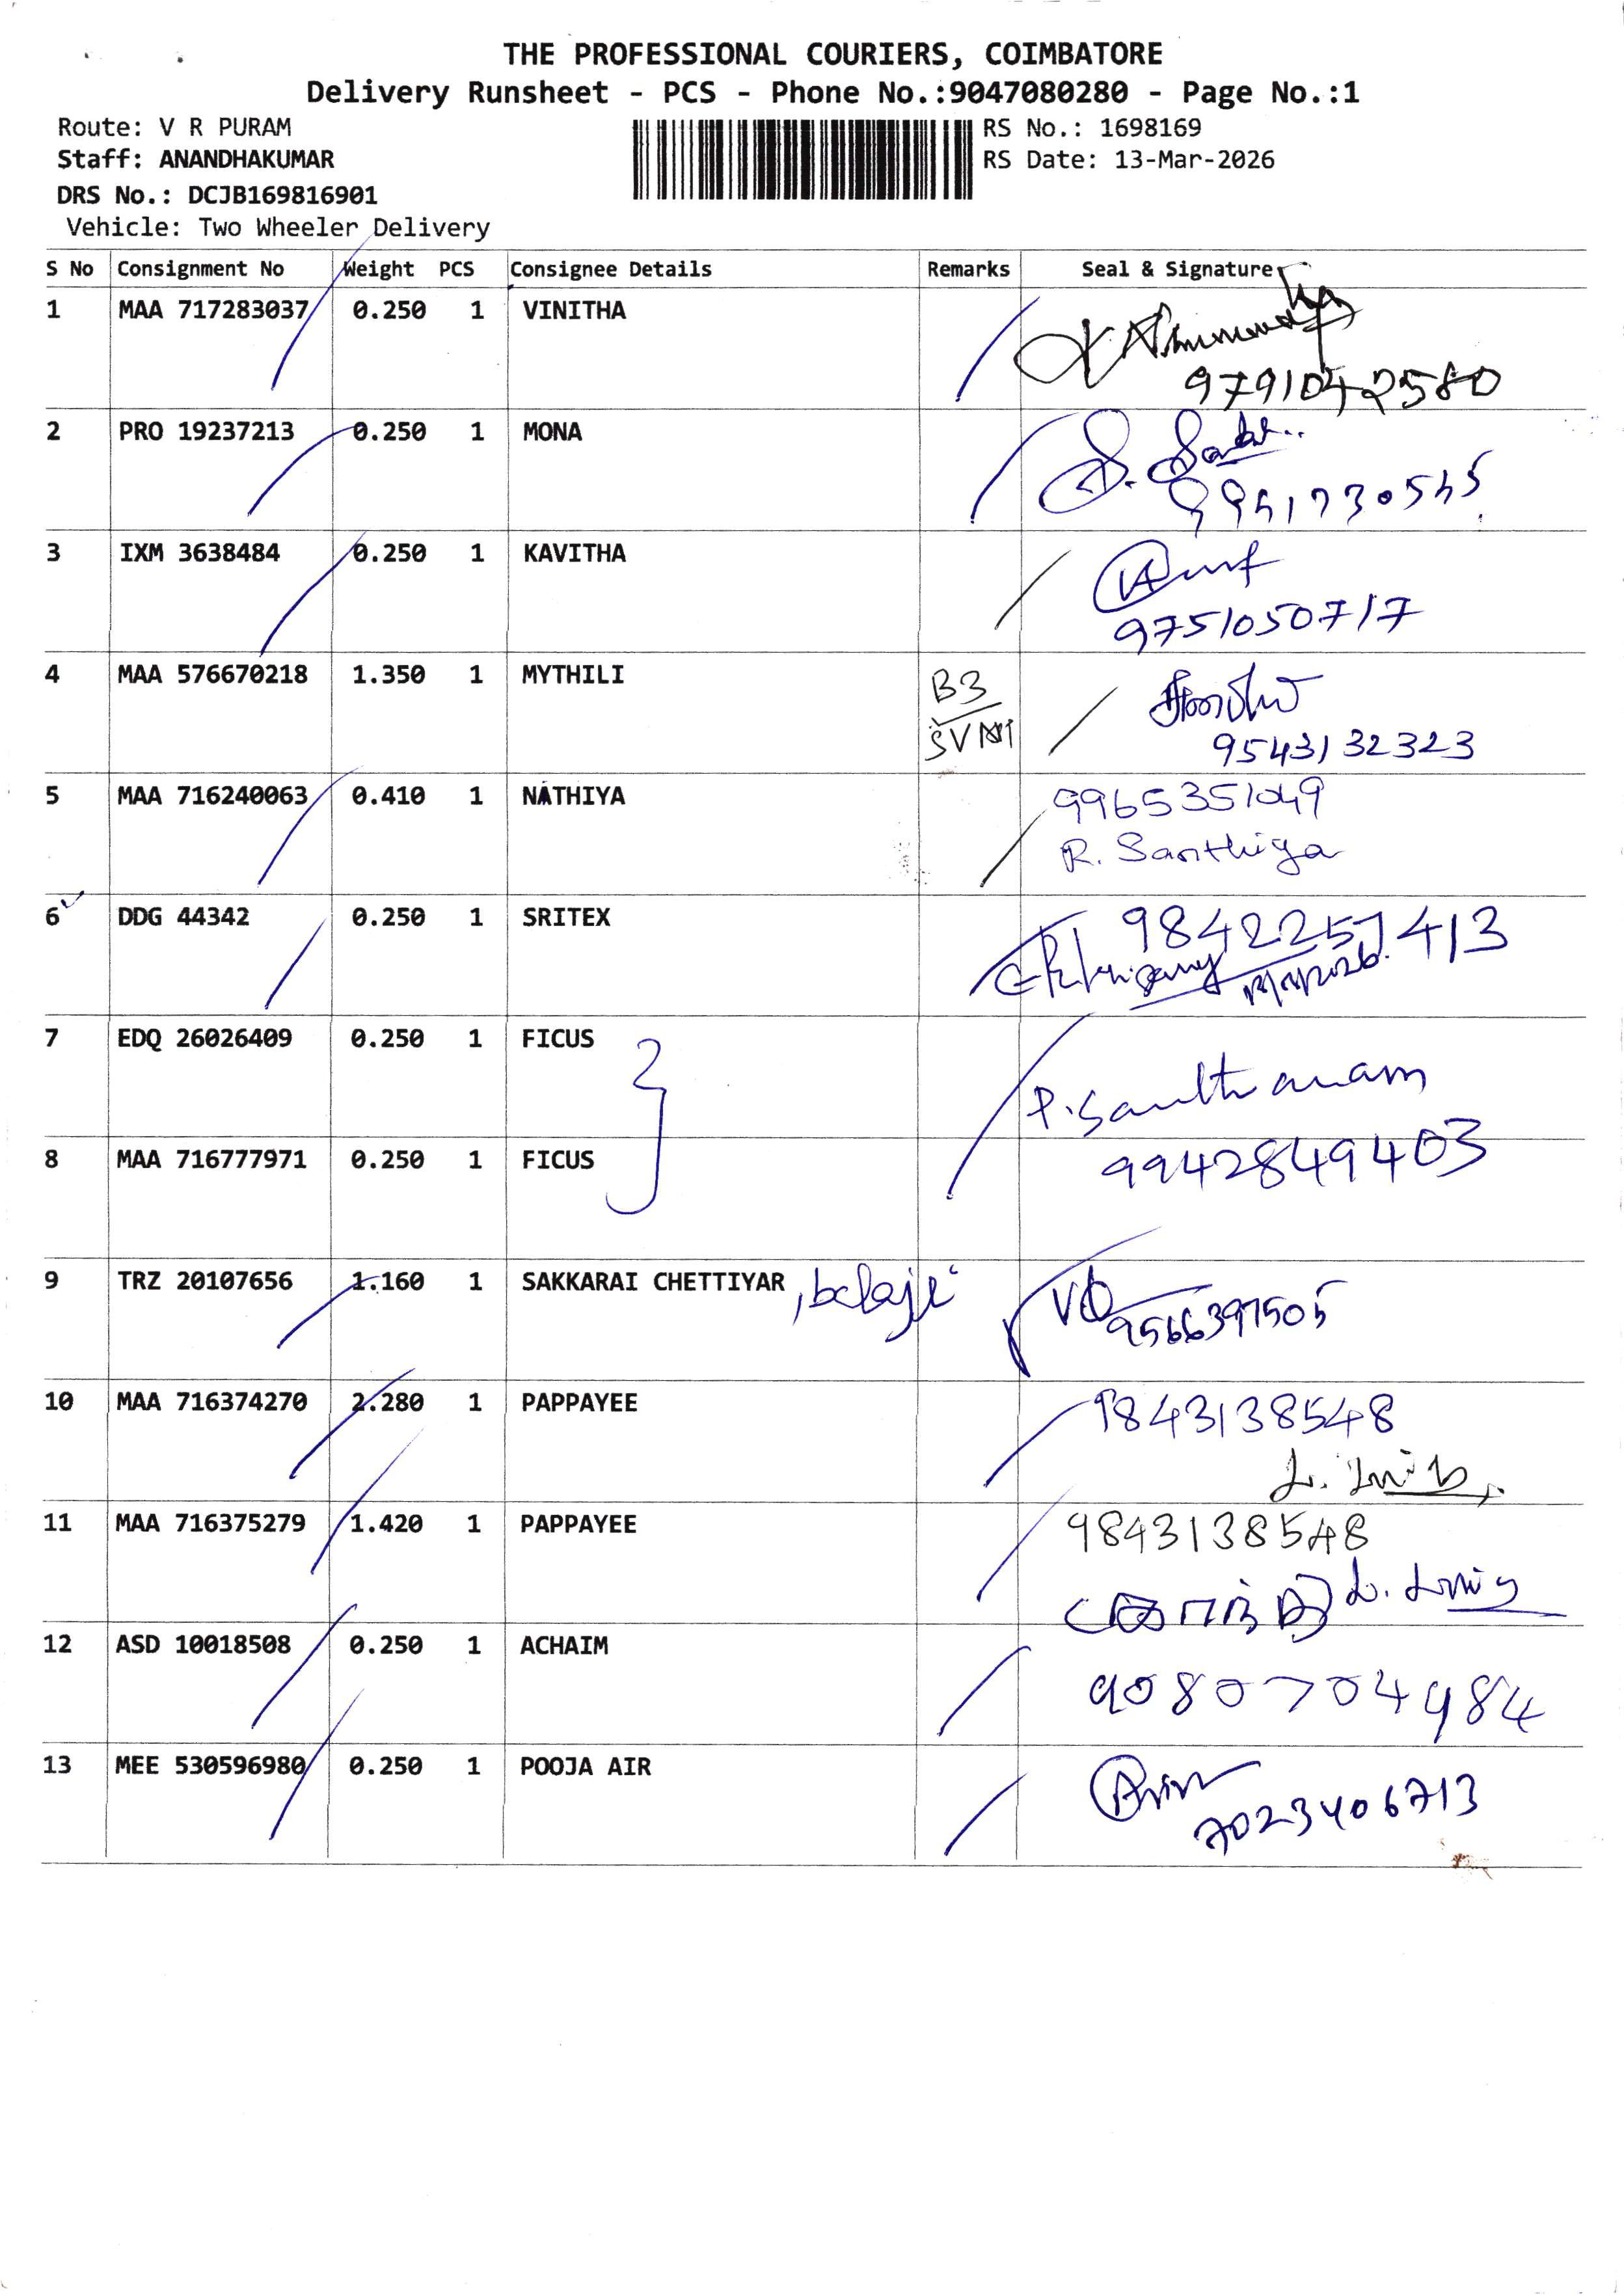 THE PROFESSIONAL COURIERS, COIMBATORE
Delivery Runsheet - PCS - Phone No.:9047080280 - Page No.:1
Route: V R PURAM
RS No.: 1698169
Staff: ANANDHAKUMAR
RS Date: 13-Mar-2026
DRS No.: DCJB169816901
Vehicle: Two Wheeler Delivery
S No Consignment No Weight PCS Consignee Details Remarks Seal & Signature
1 MAA 717283037 0.250 1 VINITHA
9791042580
2 PRO 19237213 0.250 1 MONA
3 IXM 3638484 0.250 1 KAVITHA
9751050717
4 MAA 576670218 1.350 1 MYTHILI B3
9543132323
5 MAA 716240063 0.410 1 NATHIYA 9965351049
R. Santhiya
6 DDG 44342 0.250 1 SRITEX
7 EDQ 26026409 0.250 1 FICUS
P. Santhanam
8 MAA 716777971 0.250 1 FICUS 9942849403
9 TRZ 20107656 1.160 1 SAKKARAI CHETTIYAR, balaji
9566397505
10 MAA 716374270 2.280 1 PAPPAYEE 9843138548
11 MAA 716375279 1.420 1 PAPPAYEE 9843138548
12 ASD 10018508 0.250 1 ACHAIM
9080704984
13 MEE 530596980 0.250 1 POOJA AIR
7023406713